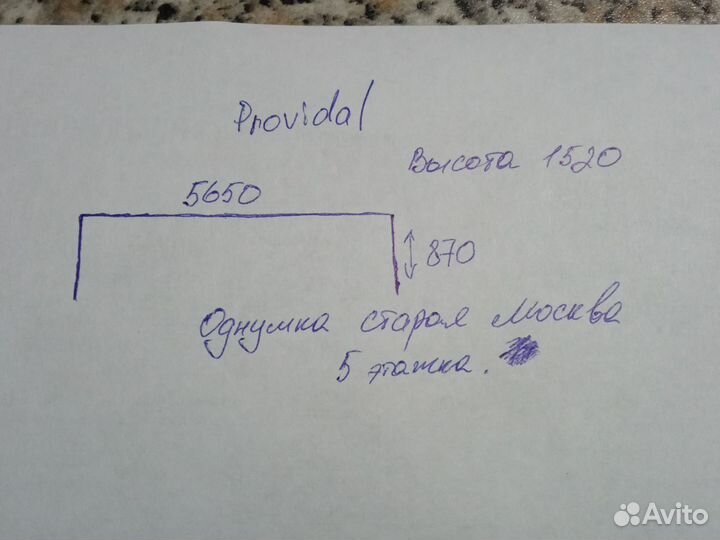 Providal
Высота 1520
5650
870
Однушка старая Москва
5 этажка.
Avito